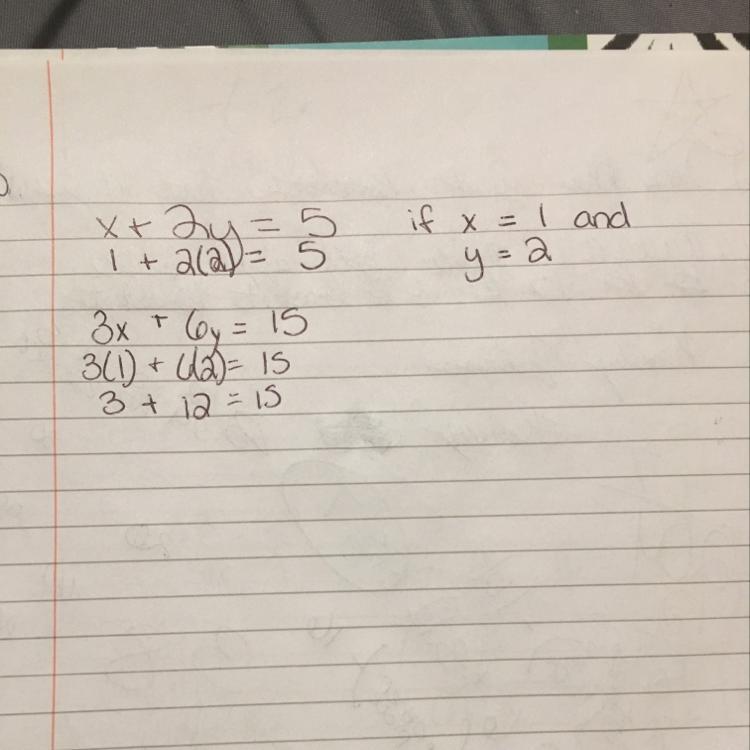 x + 2y = 5 if x = 1 and
1 + 2(2) = 5 y = 2
3x + 6y = 15
3(1) + 6(2) = 15
3 + 12 = 15